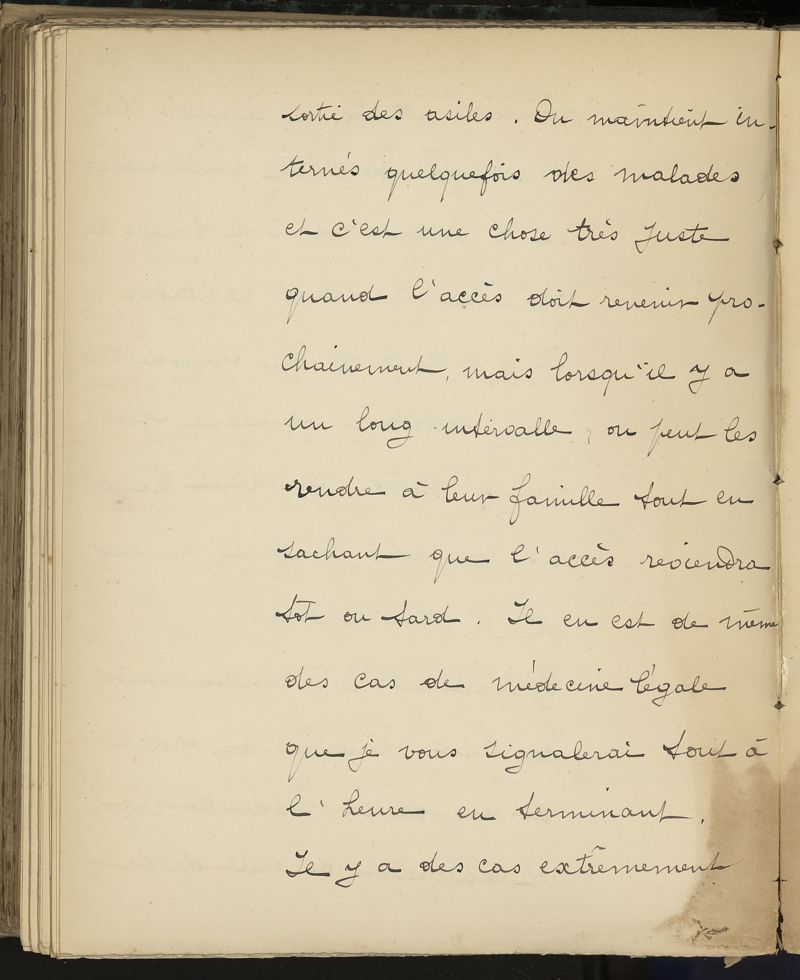 sortie des asiles. On maintient in-
ternés quelquefois des malades
et c'est une chose très juste
quand l'accès doit revenir pro-
chainement, mais lorsqu'il y a
un long intervalle, on peut les
rendre à leur famille tout en
sachant que l'accès reviendra
tôt ou tard. Il en est de même
des cas de médecine légale
que je vous signalerai tout à
l'heure en terminant.
Il y a des cas extrêmement